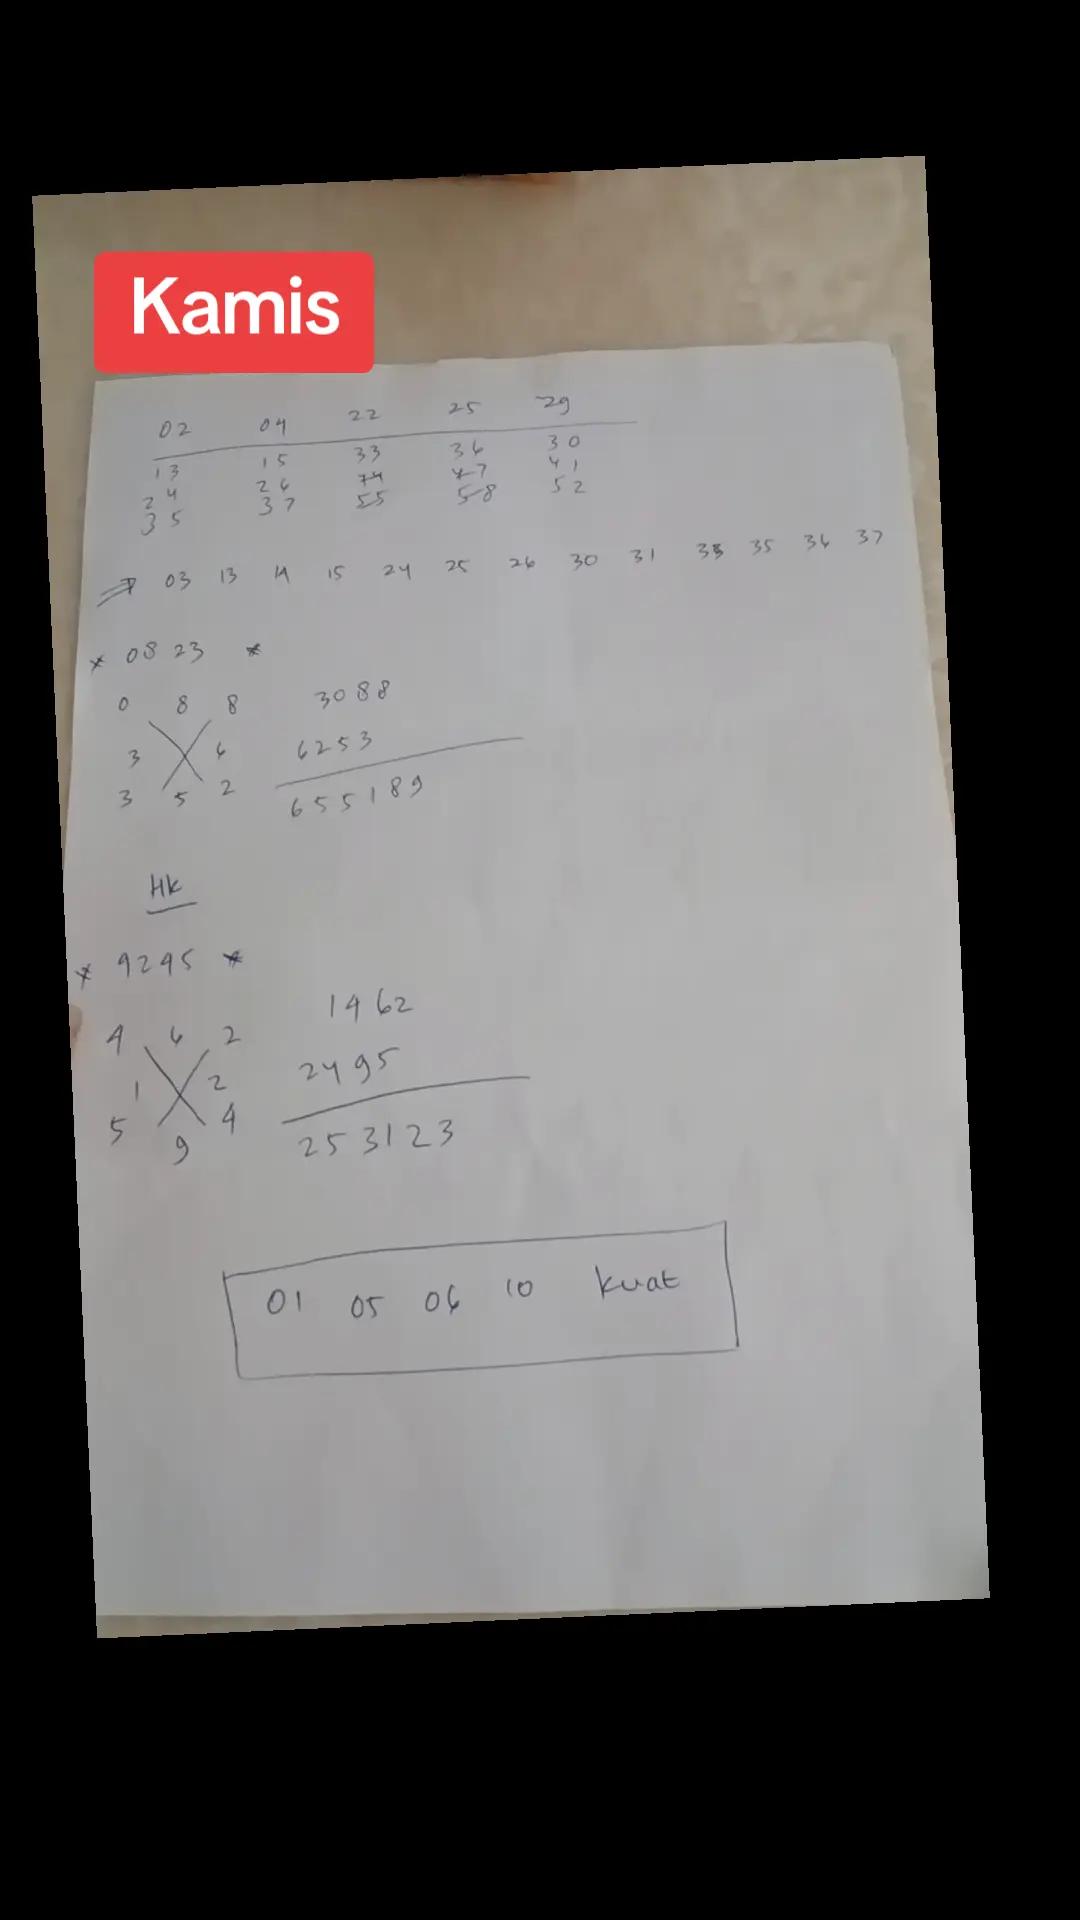 Kamis
02 04 22 25 29
13 15 33 36 30
24 26 44 47 41
35 37 55 58 52
⇒ 03 13 14 15 24 25 26 30 31 33 35 36 37
* 0823 *
0 8 8 3088
3 6 6253
3 5 2 655189
HK
* 9295 *
4 6 2 1462
1 2 2495
5 9 4 253123
01 05 06 10 kuat